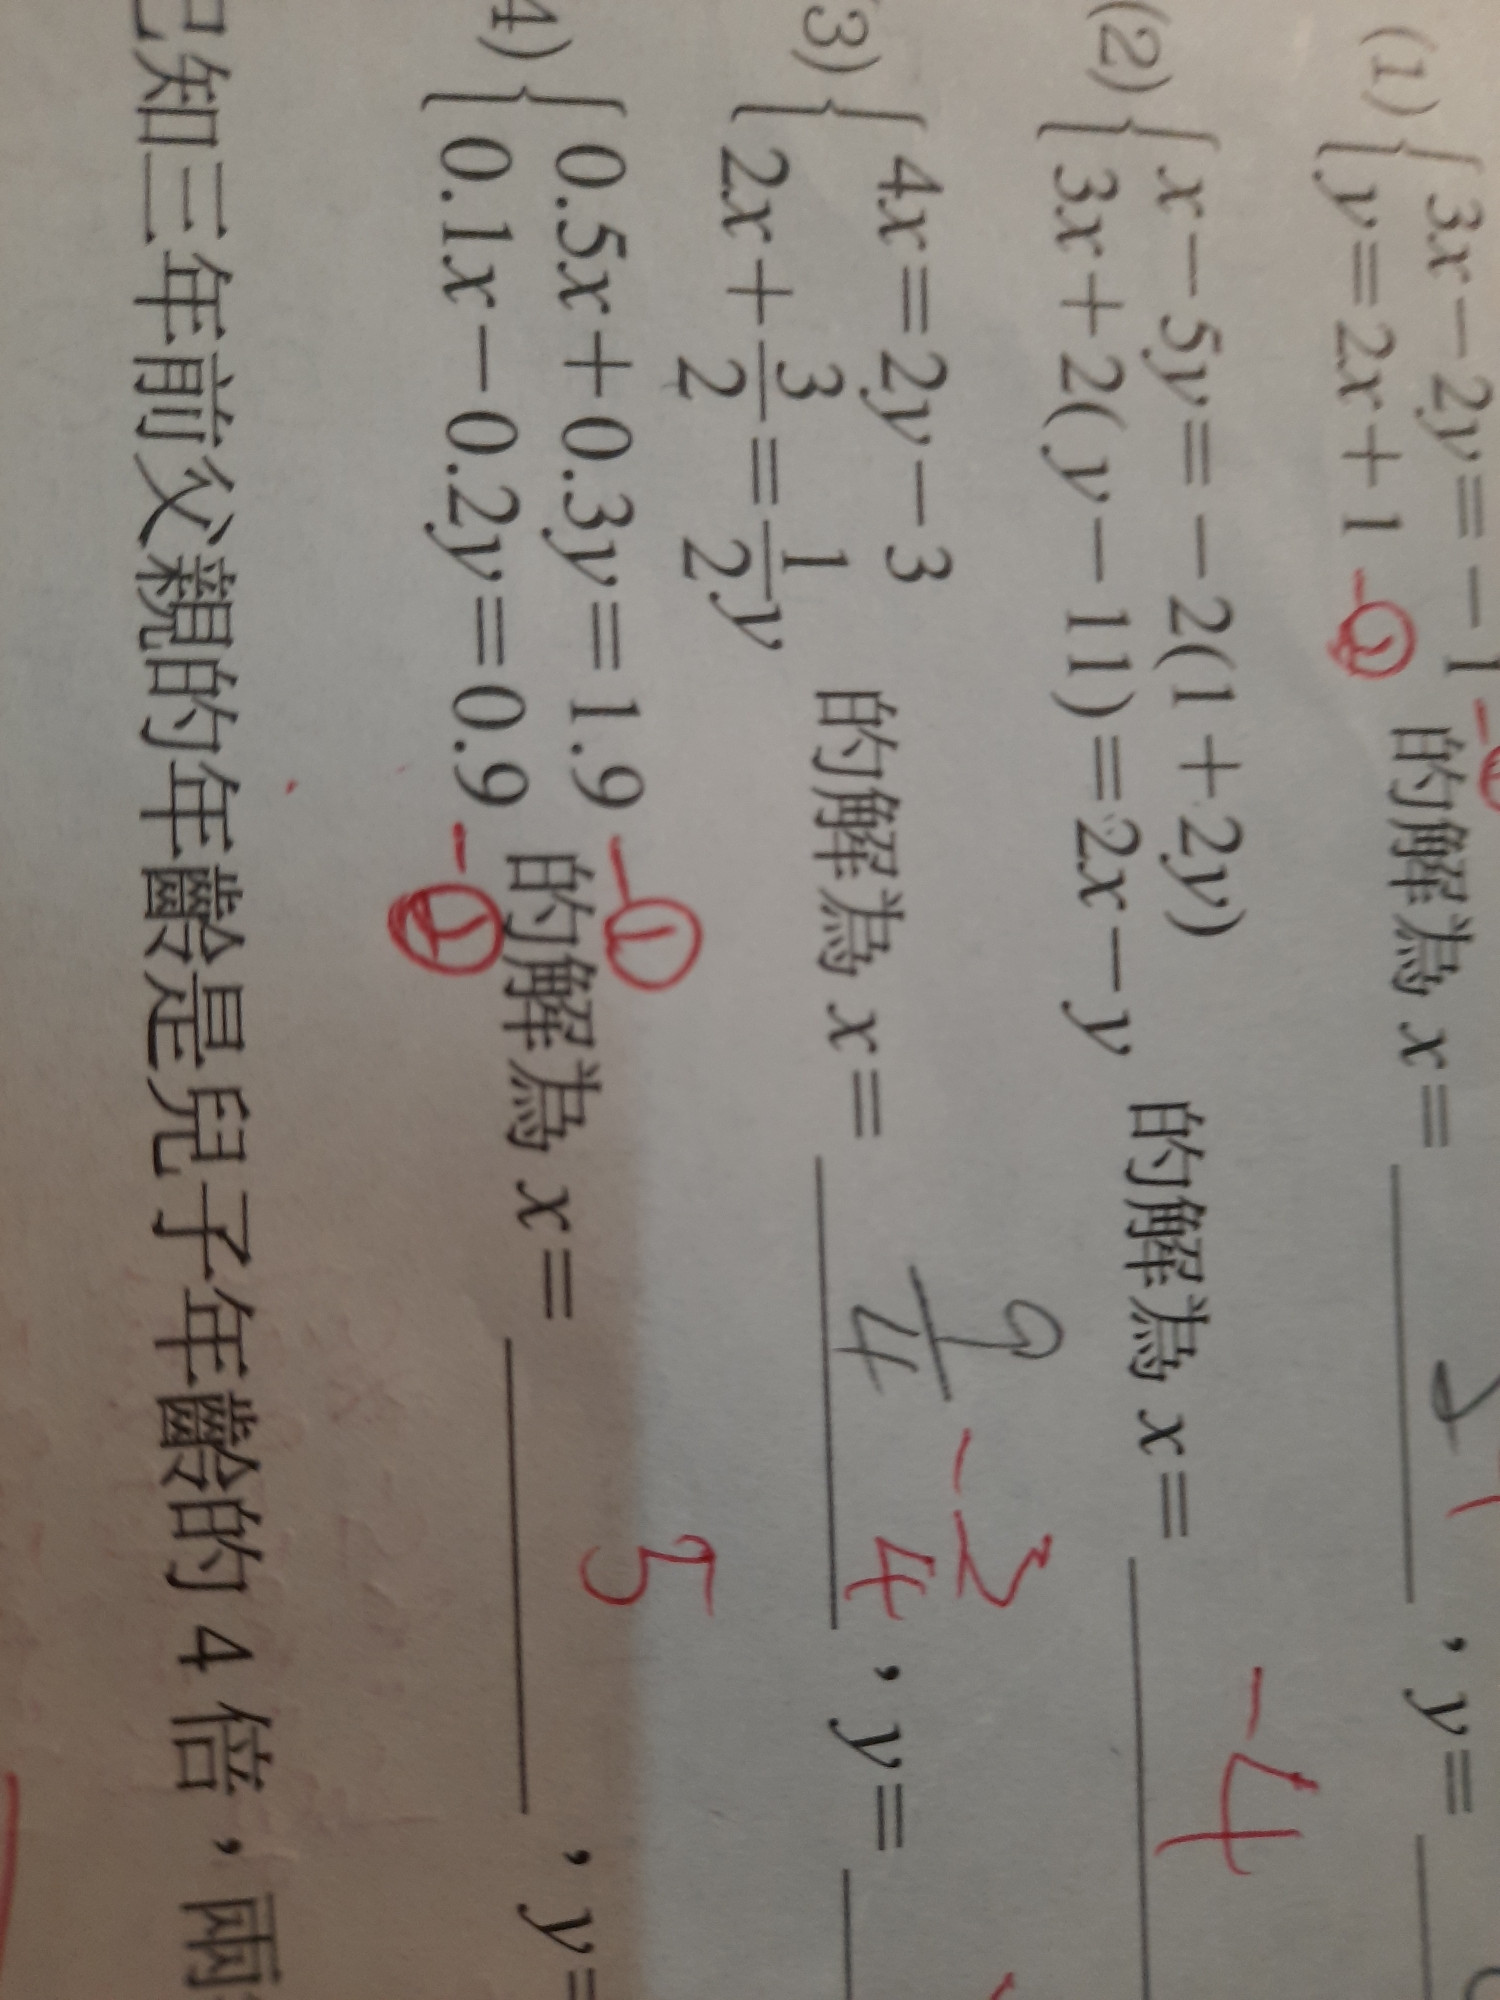 (1) { 3x－2y＝－1 －
y＝2x＋1 －② 的解為 x＝ ，y＝
(2) { x－5y＝－2(1＋2y)
3x＋2(y－11)＝2x－y 的解為 x＝ －4
(3) { 4x＝2y－3
2x＋3/2＝1/2y 的解為 x＝ 9/4 －3/4 ，y＝
4) { 0.5x＋0.3y＝1.9 －①
0.1x－0.2y＝0.9 －② 的解為 x＝ 5 ，y＝
已知三年前父親的年齡是兒子年齡的 4 倍，兩